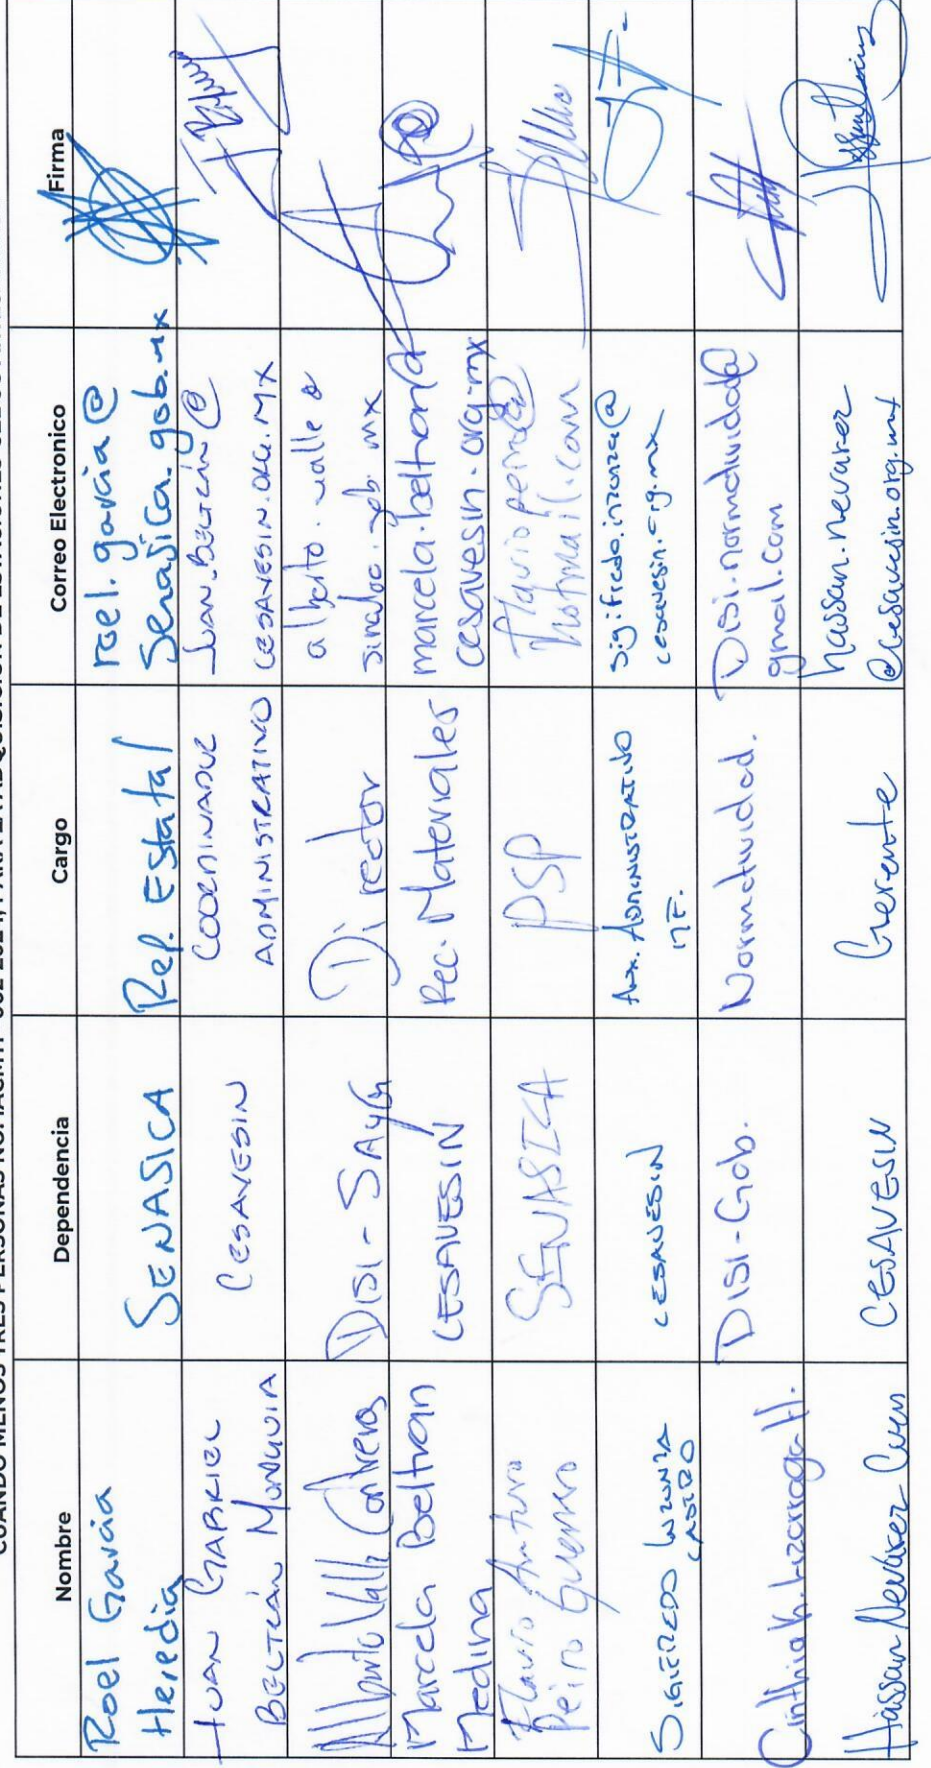 CUANDO MENOS TRES PERSONAS
Nombre Dependencia Cargo Correo Electronico Firma
Roel Garcia
Heredia
SENASICA
Rep. Estatal
roel.garcia@
Senasica.gob.mx
JUAN GABRIEL
BELTRÁN MONDUVIA
CESAVESIN
COORDINADOR
ADMINISTRATIVO
JUAN.BELTRÁN@
CESAVESIN.ORG.MX
Alberto Valle Contreras
DISI - SAyG
Director
alberto.valle@
sinaloa.gob.mx
Marcela Beltran
Medina
CESAVESIN
Rec. Materiales
marcela.beltran@
cesavesin.org.mx
Flavio Arturo
Peiro Guerrero
SENASICA
PSP
flaviopeiro@
hotmail.com
SIGIFREDO INZUNZA
CASTRO
CESAVESIN
Aux. ADMINISTRATIVO
MF.
sigifredo.inzunza@
cesavesin.org.mx
Cinthia K. Lizarraga H.
DISI-Gob.
Normatividad.
Disi.normatividad@
gmail.com
Hassan Nevarez
CESAVESIN
Gerente
hassan.nevarez
@cesavesin.org.mx